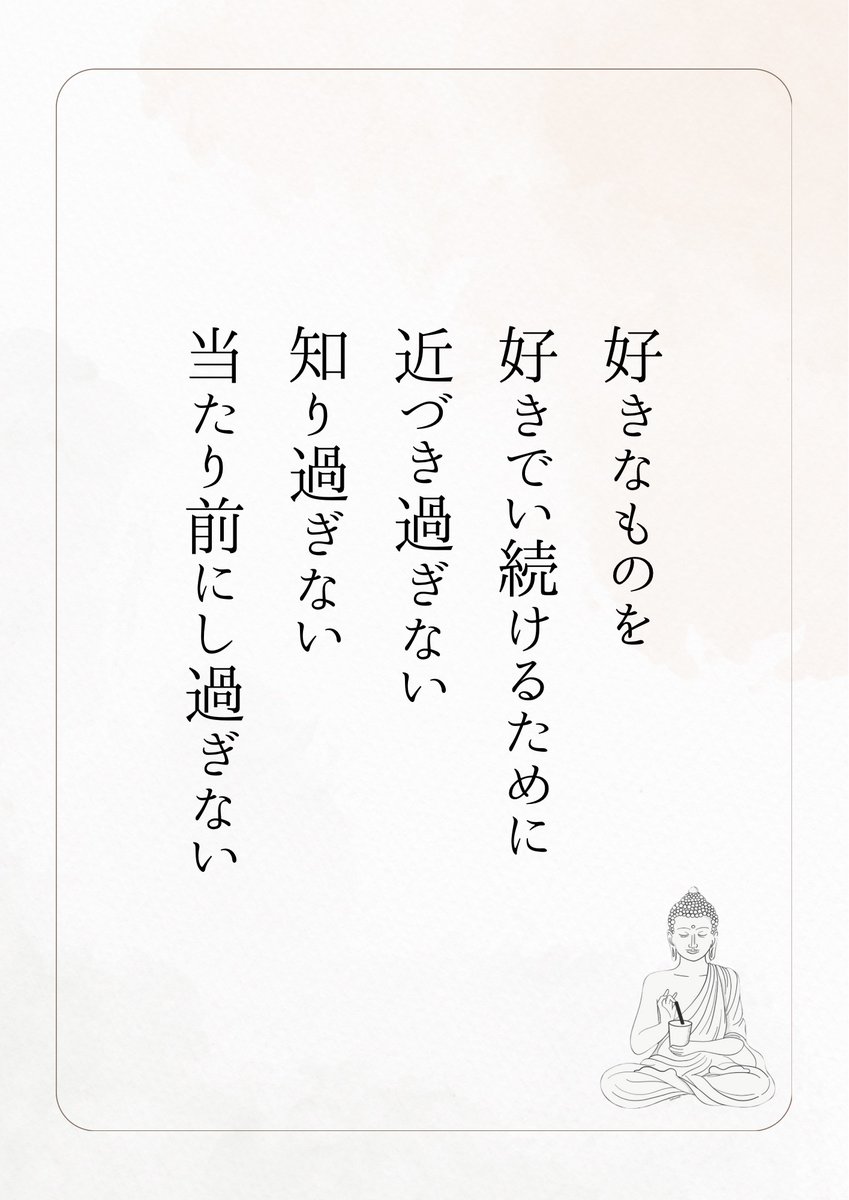 好きなものを
好きでい続けるために
近づき過ぎない
知り過ぎない
当たり前にし過ぎない